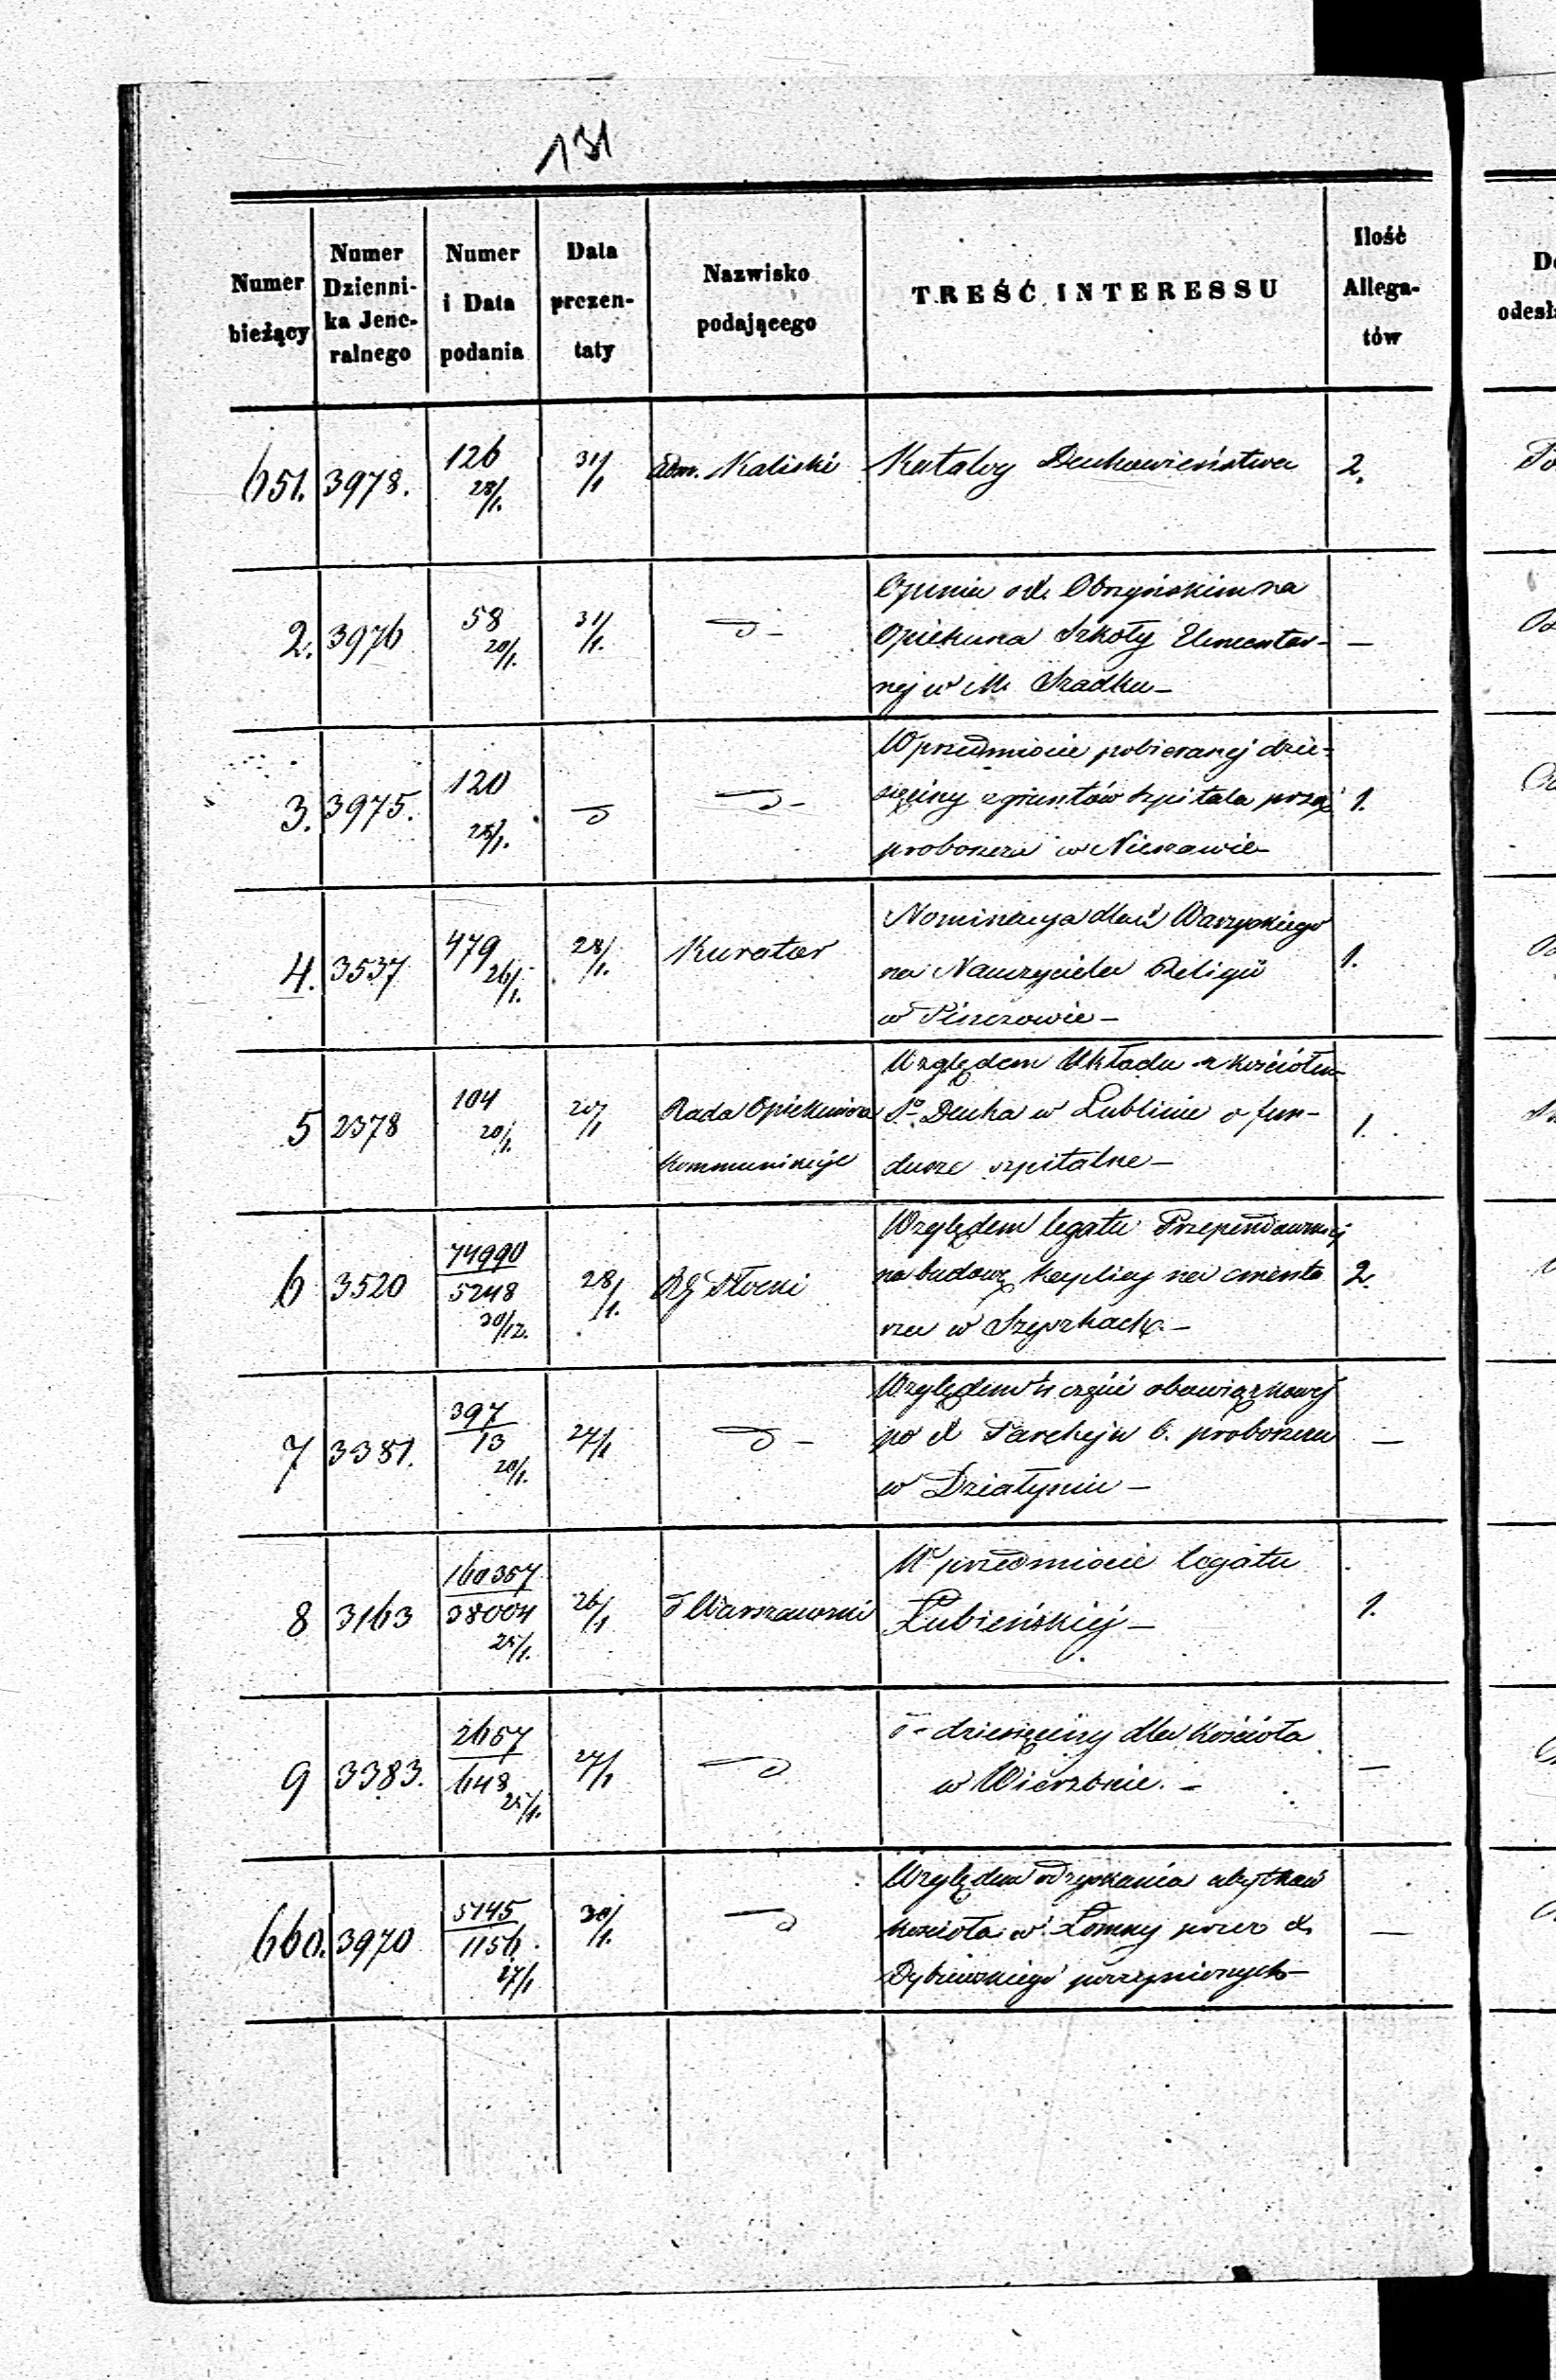 131
Numer bieżący
Numer Dzienni-
ka Jene-
ralnego
Numer
i Data
podania
Data
prezen-
taty
Nazwisko
podającego
TREŚĆ INTERESSU
Ilość
Allega-
tów
651. 3978. 126 28/1. 31/1 Adm. Kaliski Katalog Duchowieństwa 2.
2. 3976 58 20/1. 31/1. Opinia o
Opiekuna Szkoły Elementar- —
nej w M. Szadku —
3. 3975. 120 28/1. W przedmiocie pobieranej dzie-
sięciny z gruntów szpitala przez 1.
proboszcza w Nieszawie
4. 3537 479 26/1. 28/1. Kurator Nominacya dla X Waszyskiego
na Nauczyciela Religii 1.
w Pinczowie —
5 2378 104 20/1. 20/1 Rada Opiekuńcza Względem Układu z kościołem
So Ducha w Lublinie o fun- 1.
kommunikuje dusze szpitalne —
6 3520 74990 5248 30/12. 28/1. RG Płocki Względem legatu
na budowę kaplicy na cmenta 2.
rzu w
7 3381. 397 13 20/1. 27/1 Względem części obowiązkowej
po X proboszczu —
w Działyniu —
8 3163 160357 38004 25/1. 26/1 Warszawski W przedmiocie legatu
Łubieńskiej — 1.
9 3383. 2657 648 25/1. 27/1 dziesięciny dla kościoła
w Wierzbnie. — —
660. 3970 5745 1156. 27/1 30/1. Względem odzyskania ubytków
kościoła w Łomny przez X. —
poczynionych —
De
odesł